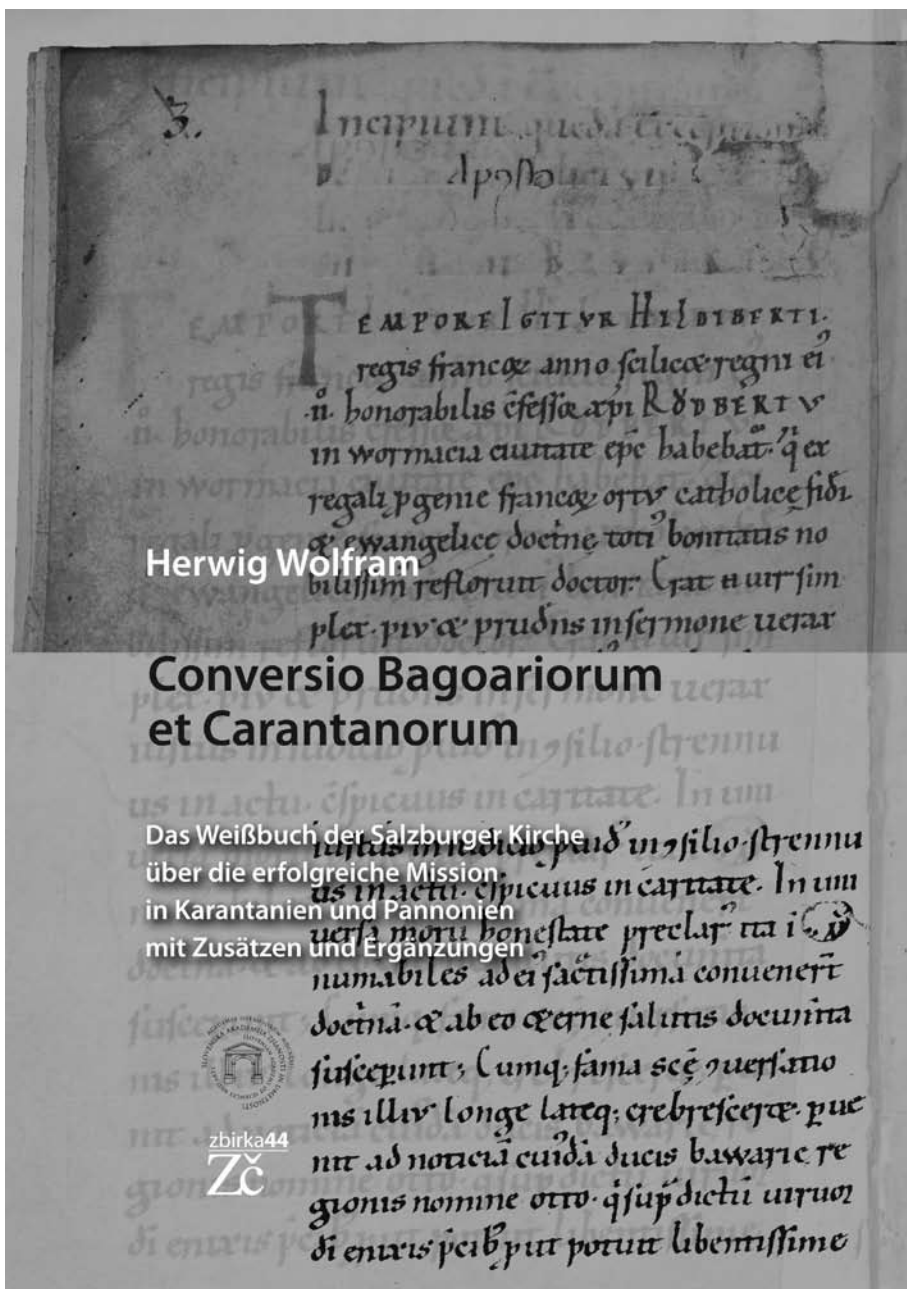 3.
Incipiunt
Aposto
TEMPORE IGITVR HILDIBERTI.
regis francoꝝ anno scilicet regni ei᾿
.ii. honorabilis c̄fessor xp̄i RVDBERTV
in wormacia ciuitate ep̄c habebat᾿. q̇ ex
regali ꝓgenie francoꝝ ortus catholice fidi
& ewangelice doctrine toti᾿ bonitatis no
bilissim᾿ refloruit doctor. Erat n uir sim
plex. pius & prudens in sermone uerax
Herwig Wolfram
Conversio Bagoariorum
et Carantanorum
Das Weißbuch der Salzburger Kirche
über die erfolgreiche Mission
in Karantanien und Pannonien
mit Zusätzen und Ergänzungen
iustus in iudicio ꝓuid᾿ in ꝯsilio. strennu
us in actu. c̄spicuus in caritate. In uni
uersa moru honestate preclar᾿ ita i
numabiles ad ei᾿ sāctissimā conuenert̄
doctnā. & ab eo &erne salutis documta
susceꝑunt; Cumq; fama scē ꝯuersatio
nis illius longe lateq; crebresceret. ꝑue
nit ad noticiā cuidā ducis bawarie re
gionis nomine otto. q̇ sup̄dictū uirū
di enixis p̄cib; put potuit libentissime
SLOVENSKA AKADEMIJA ZNANOSTI IN UMETNOSTI
zbirka44
Zč